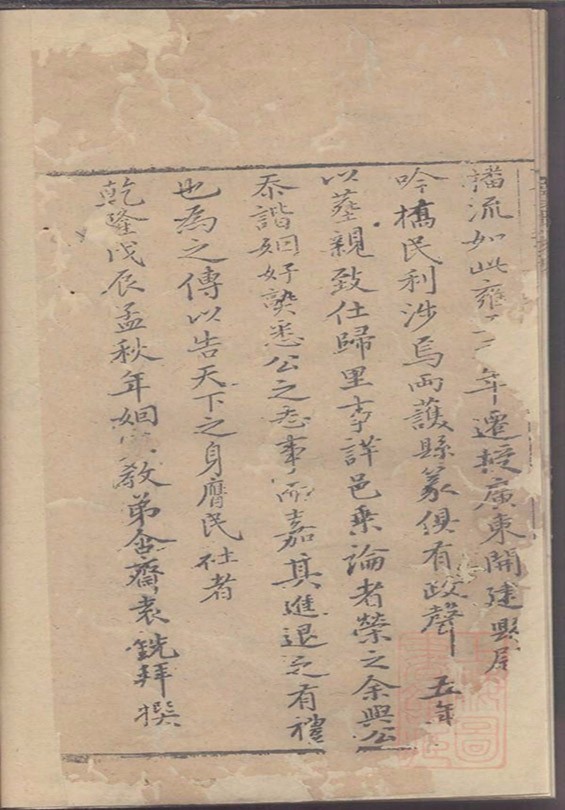 播流如此雍年遷授廣東開建縣
吟橋民利涉焉兩護縣篆俱有政聲五年
以塟親致仕歸里事詳邑乗論者榮之余與公
忝諧姻好諗悉公之志事而嘉其進退之有禮
也為之傳以告天下之身膺民社者
乾隆戊辰孟秋年姻敎弟含齋袁銑拜撰